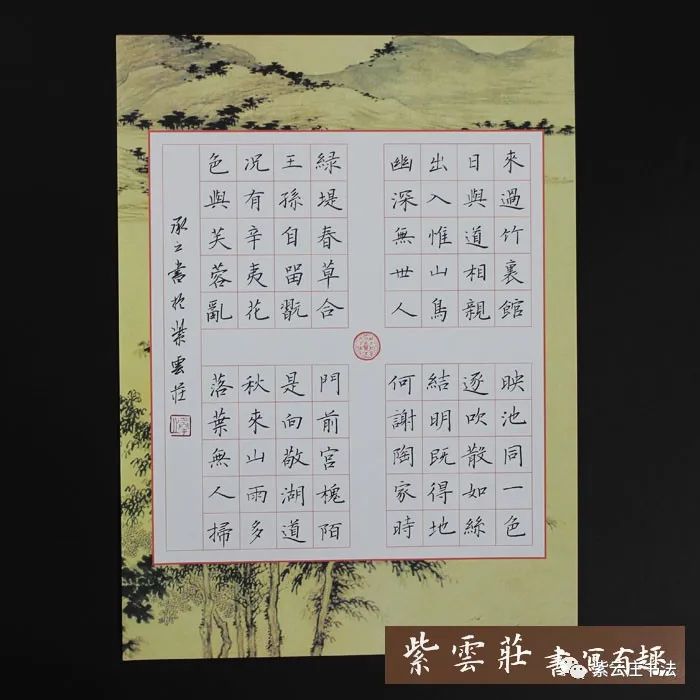 來過竹裏館
日與道相親
出入惟山鳥
幽深無世人
映池同一色
逐吹散如絲
結明既得地
何謝陶家時
綠堤春草合
王孫自留翫
況有辛夷花
色與芙蓉亂
門前宮槐陌
是向敧湖道
秋來山雨多
落葉無人掃
承之書於紫雲莊
紫雲莊 書寫有趣
紫云庄书法